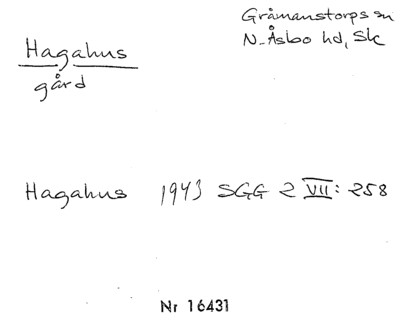 Hagahus
gård
Gråmanstorps sn
N. Åsbo hd, Sk
Hagahus 1943 SGG 2 VII: 258
Nr 16431